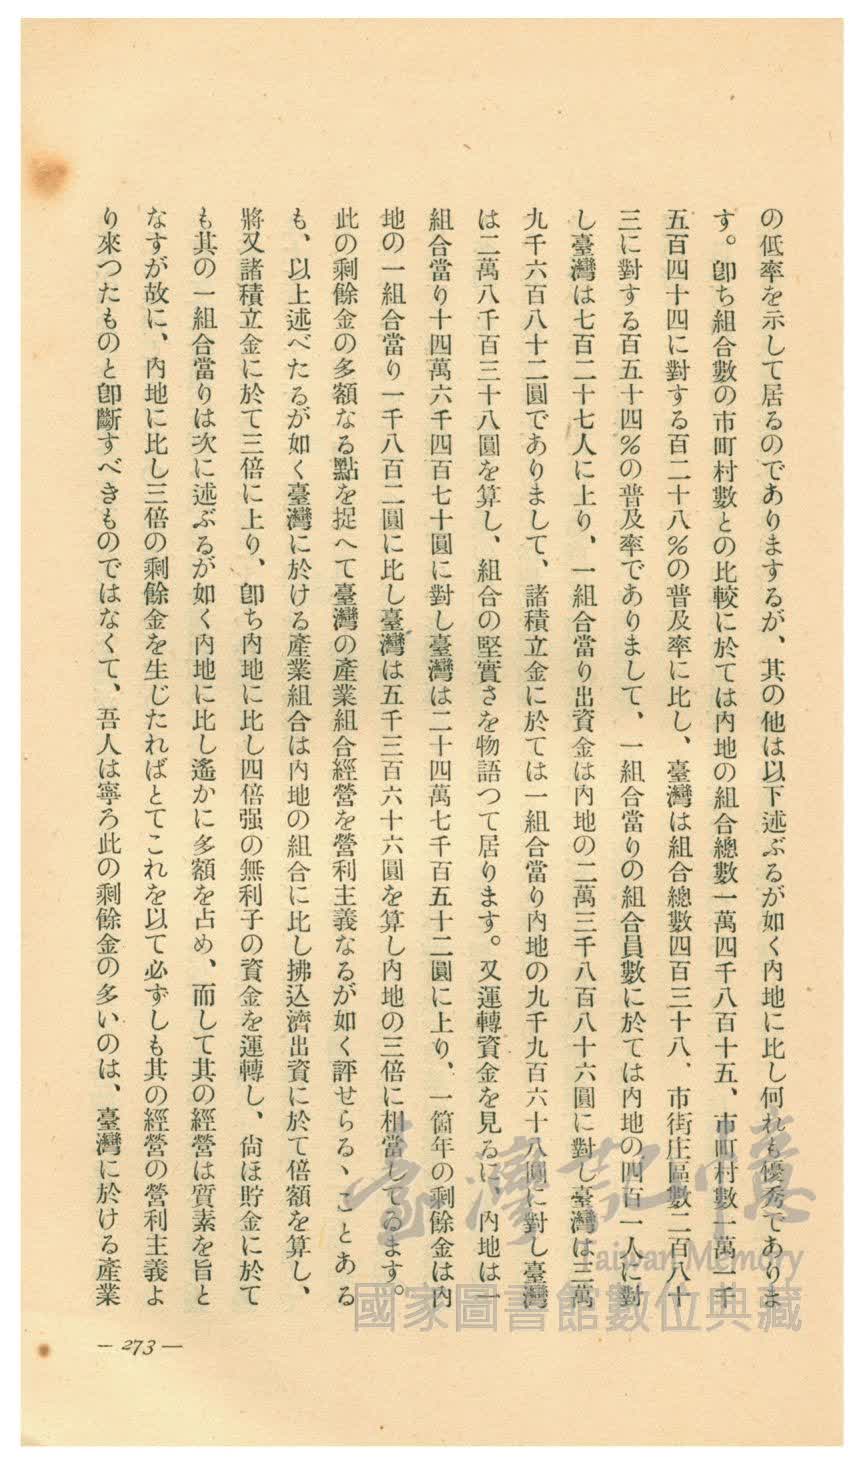 の低率を示して居るのでありまするが、其の他は以下述ぶるが如く內地に比し何れも優秀でありま
す。卽ち組合數の市町村數との比較に於ては內地の組合總數一萬四千八百十五、市町村數一萬一千
五百四十四に對する百二十八％の普及率に比し、臺灣は組合總數四百三十八、市街庄區數二百八十
三に對する百五十四％の普及率でありまして、一組合當りの組合員數に於ては內地の四百一人に對
し臺灣は七百二十七人に上り、一組合當り出資金は內地の二萬三千八百八十六圓に對し臺灣は三萬
九千六百八十二圓でありまして、諸積立金に於ては一組合當り內地の九千九百六十八圓に對し臺灣
は二萬八千百三十八圓を算し、組合の堅實さを物語つて居ります。又運轉資金を見るに、內地は一
組合當り十四萬六千四百七十圓に對し臺灣は二十四萬七千百五十二圓に上り、一箇年の剩餘金は內
地の一組合當り一千八百二圓に比し臺灣は五千三百六十六圓を算し內地の三倍に相當してゐます。
此の剩餘金の多額なる點を捉へて臺灣の產業組合經營を營利主義なるが如く評せらるゝことある
も、以上述べたるが如く臺灣に於ける產業組合は內地の組合に比し拂込濟出資に於て倍額を算し、
將又諸積立金に於て三倍に上り、卽ち內地に比し四倍强の無利子の資金を運轉し、尙ほ貯金に於て
も其の一組合當りは次に述ぶるが如く內地に比し遙かに多額を占め、而して其の經營は質素を旨と
なすが故に、內地に比し三倍の剩餘金を生じたればとてこれを以て必ずしも其の經營の營利主義よ
り來つたものと卽斷すべきものではなくて、吾人は寧ろ此の剩餘金の多いのは、臺灣に於ける產業
— 273 —
臺灣記憶
Taiwan Memory
國家圖書館數位典藏